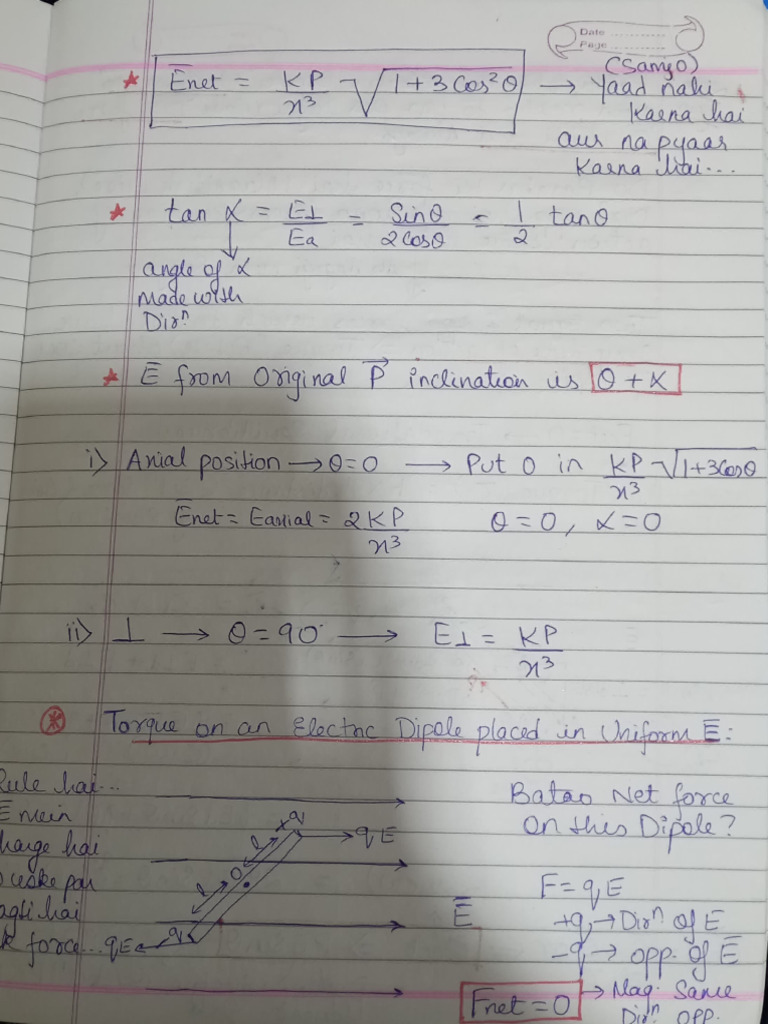 Date ............
Page ............
* Enet = KP/x³ √1+3Cos²θ → (Samjo)
Yaad nahi
Karna hai
aur na pyaar
Karna hai...
* tan α = E⊥/Ea = Sinθ/2Cosθ = 1/2 tanθ
angle of α
made with
Dirⁿ
* E from Original P inclination is θ+α
i) Axial position → θ=0 → Put 0 in KP/x³ √1+3Cosθ
Enet = Eaxial = 2KP/x³ θ=0, α=0
ii) ⊥ → θ=90° → E⊥ = KP/x³
* Torque on an Electric Dipole placed in Uniform E:
Rule hai...
E mein
harge hai
uske par
agti hai
k force...
+q
qE
l
O
l
-q
qE
E
Batao Net force
On this Dipole?
F = qE
+q → Dirⁿ of E
-q → opp. of E
Fnet = 0 → Mag. Same
Dirⁿ opp.